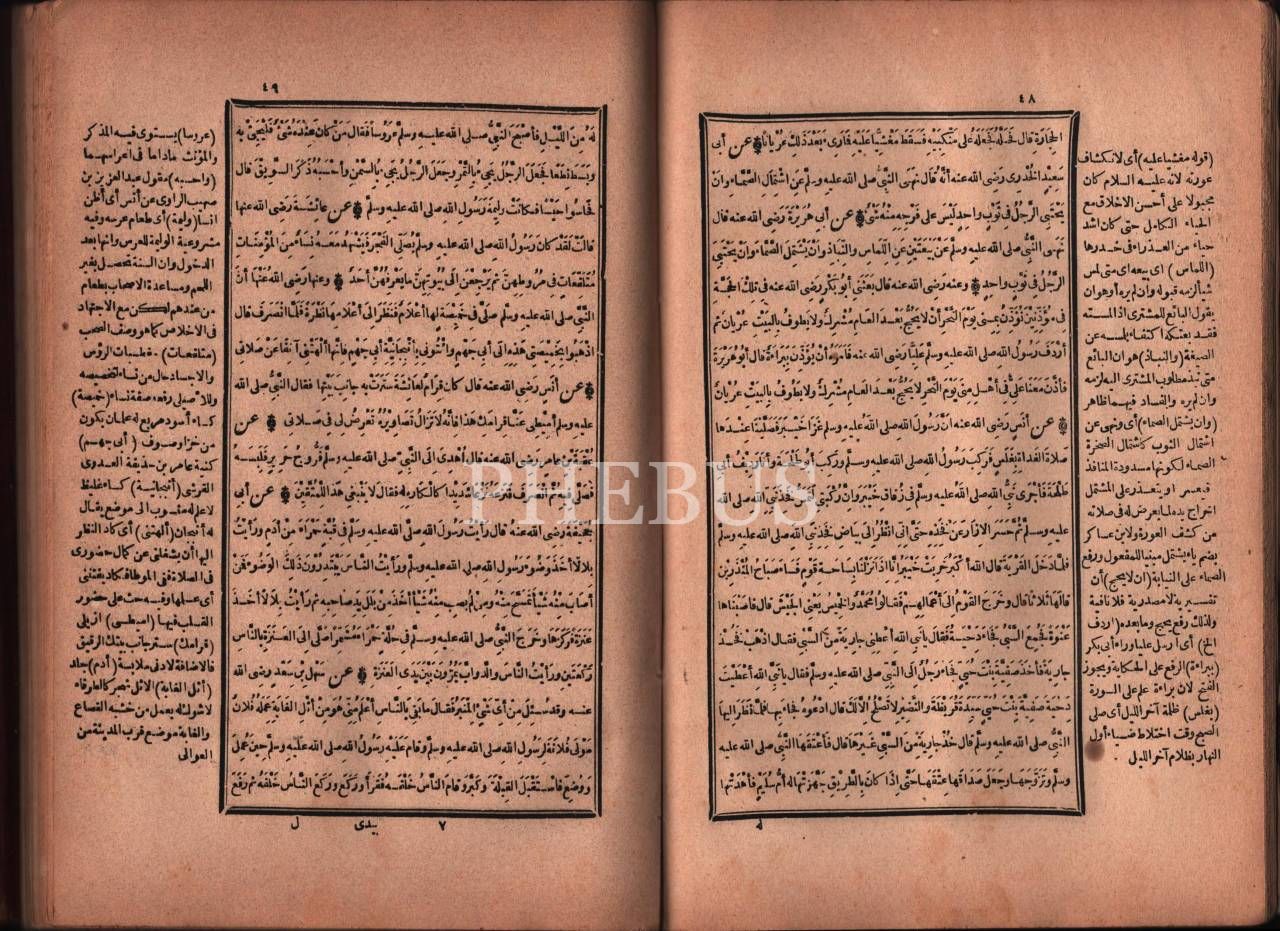 ٤٨
الحجارة قال فحله فجعله على منكبيه فسقط مغشيا عليه فما رؤى بعد ذلك عريانا ۞ عن أبى
سعيد الخدرى رضى الله عنه أنه قال نهى النبى صلى الله عليه وسلم عن اشتمال الصماء وان
يحتبى الرجل فى ثوب واحد ليس على فرجه منه شئ ۞ عن أبى هريرة رضى الله عنه قال
نهى النبى صلى الله عليه وسلم عن بيعتين عن اللماس والنباذ وان يشتمل الصماء وان يحتبى
الرجل فى ثوب واحد ۞ وعنه رضى الله عنه قال بعثنى أبو بكر رضى الله عنه فى تلك الحجة
فى مؤذنين نؤذن بمنى يوم النحر أن لا يحج بعد العام مشرك ولا يطوف بالبيت عريان ثم
أردف رسول الله صلى الله عليه وسلم عليا رضى الله عنه فأمره أن يؤذن ببراءة قال أبو هريرة
فأذن معنا على فى أهل منى يوم النحر لا يحج بعد العام مشرك ولا يطوف بالبيت عريان
۞ عن أنس رضى الله عنه أن رسول الله صلى الله عليه وسلم غزا خيبر فصلينا عندها
صلاة الغداة بغلس فركب رسول الله صلى الله عليه وسلم وركب أبو طلحة وأنا رديف أبى
طلحة فأجرى نبى الله صلى الله عليه وسلم فى زقاق خيبر وان ركبتى لتمس فخذ نبى الله صلى الله
عليه وسلم ثم حسر الازار عن فخذه حتى انى انظر الى بياض فخذ نبى الله صلى الله عليه وسلم
فلما دخل القرية قال الله أكبر خربت خيبر انا اذا نزلنا بساحة قوم فساء صباح المنذرين
قالها ثلاثا قال وخرج القوم الى أعمالهم فقالوا محمد والخميس يعنى الجيش قال فأصبناها
عنوة فجمع السبى فجاء دحية فقال يا نبى الله أعطنى جارية من السبى فقال اذهب فخذ
جارية فأخذ صفية بنت حيى فجاء رجل الى النبى صلى الله عليه وسلم فقال يا نبى الله أعطيت
دحية صفية بنت حيى سيدة قريظة والنضير لا تصلح الا لك قال ادعوه فجاء بها فلما نظر اليها
النبى صلى الله عليه وسلم قال خذ جارية من السبى غيرها قال فأعتقها النبى صلى الله عليه
وسلم وتزوجها وجعل صداقها عتقها حتى اذا كان بالطريق جهزتها له أم سليم فأهدتها
له
(قوله مغشيا عليه) أى لانكشاف
عورته لانه عليه السلام كان
مجبولا على أحسن الاخلاق مع
الحياء الكامل حتى كان اشد
حياء من العذراء فى خدرها
(اللماس) اى بيعه اى متى لمس
شيأ لزمه قبوله وان لم يره أو هو ان
يقول البائع للمشترى اذا لمسته
فقد بعتكه اكتفاء بلمسه عن
الصيغة (والنباذ) هو ان البائع
متى نبذ مطلوب المشترى اليه لزمه
وان لم يره والفساد فيهما ظاهر
(وان يشتمل الصماء) أى ونهى عن
اشتمال الثوب كاشتمال الصخرة
الصماء لكونها مسدودة المنافذ
فيعسر او يتعذر على المشتمل
اخراج يده لما يعرض له فى صلاته
من كشف العورة ولابن عساكر
بضم ياء يشتمل مبنيا للمفعول ورفع
الصماء على النيابة (ان لا يحج) أن
تفسيرية لا مصدرية فلا نافية
ولذلك رفع يحج وما بعده (أردف
الخ) أى أرسل عليا وراء أبى بكر
(ببراءة) الرفع على الحكاية ويجوز
الفتح لان براءة علم على السورة
(بغلس) ظلمة آخر الليل أى صلى
الصبح وقت اختلاط ضياء أول
النهار بظلام آخر الليل
٤٩
له من الليل فأصبح النبى صلى الله عليه وسلم عروسا فقال من كان عنده شئ فليجئ به
وبسط نطعا فجعل الرجل يجئ بالتمر وجعل الرجل يجئ بالسمن وأحسبه ذكر السويق قال
فحاسوا حيسا فكانت وليمة رسول الله صلى الله عليه وسلم ۞ عن عائشة رضى الله عنها
قالت لقد كان رسول الله صلى الله عليه وسلم يصلى الفجر فيشهد معه نساء من المؤمنات
متلفعات فى مروطهن ثم يرجعن الى بيوتهن ما يعرفهن أحد ۞ وعنها رضى الله عنها أن
النبى صلى الله عليه وسلم صلى فى خميصة لها أعلام فنظر الى أعلامها نظرة فلما انصرف قال
اذهبوا بخميصتى هذه الى أبى جهم وائتونى بانبجانية أبى جهم فانها ألهتنى آنفا عن صلاتى
۞ عن أنس رضى الله عنه قال كان قرام لعائشة سترت به جانب بيتها فقال النبى صلى الله
عليه وسلم أميطى عنا قرامك هذا فانه لا تزال تصاويره تعرض لى فى صلاتى ۞ عن
عقبة بن عامر رضى الله عنه قال أهدى الى النبى صلى الله عليه وسلم فروج حرير فلبسه
فصلى فيه ثم انصرف فنزعه نزعا شديدا كالكاره له فقال لا ينبغى هذا للمتقين ۞ عن أبى
جحيفة رضى الله عنه قال رأيت رسول الله صلى الله عليه وسلم فى قبة حمراء من أدم ورأيت
بلالا أخذ وضوء رسول الله صلى الله عليه وسلم ورأيت الناس يبتدرون ذلك الوضوء فمن
أصاب منه شيأ تمسح منه ومن لم يصب منه شيأ أخذ من بلل يد صاحبه ثم رأيت بلالا أخذ
عنزة فركزها وخرج النبى صلى الله عليه وسلم فى حلة حمراء مشمرا صلى الى العنزة بالناس
ركعتين ورأيت الناس والدواب يمرون بين يدى العنزة ۞ عن سهل بن سعد رضى الله
عنه وقد سئل من أى شئ المنبر فقال ما بقى بالناس أعلم منى هو من أثل الغابة عمله فلان
مولى فلانة لرسول الله صلى الله عليه وسلم وقام عليه رسول الله صلى الله عليه وسلم حين عمل
ووضع فاستقبل القبلة وكبر وقام الناس خلفه فقرأ وركع وركع الناس خلفه ثم رفع
٧ زبيدى ل
(عروسا) يستوى فيه المذكر
والمؤنث ماداما فى اعراسهما
(واحسبه) مقول عبد العزيز بن
صهيب الراوى عن أنس أى أظن
انسا (وليمة) أى طعام عرسه وفيه
مشروعية الوليمة للعرس وانها بعد
الدخول وان السنة تحصل بغير
اللحم ومساعدة الاصحاب بطعام
من عندهم لكن مع الاجتهاد
فى الاخلاص كما هو وصف الصحب
(متلفعات) مغطيات الرؤس
والاجساد حال من نساء لتخصيصه
وللاصيلى رفعه صفة نساء (خميصة)
كساء أسود مربع له علمان يكون
من خز أو صوف (أبى جهم)
كنية عامر بن حذيفة العدوى
القرشى (أنبجانية) كساء غليظ
لا علم له منسوب الى موضع يقال
له أنبجان (ألهتنى) أى كاد النظر
اليها أن يشغلنى عن كمال حضورى
فى الصلاة ففى الموطا فكاد يفتننى
أى علمها وفيه حث على حضور
القلب فيها (اميطى) ازيلى
(قرامك) ستر جانب بيتك الرقيق
فالاضافة لادنى ملابسة (أدم) جلد
(أثل الغابة) الاثل شجر كالطرفاء
لا شوك له يعمل من خشبه القصاع
والغابة موضع قرب المدينة من
العوالى
PHEBUS